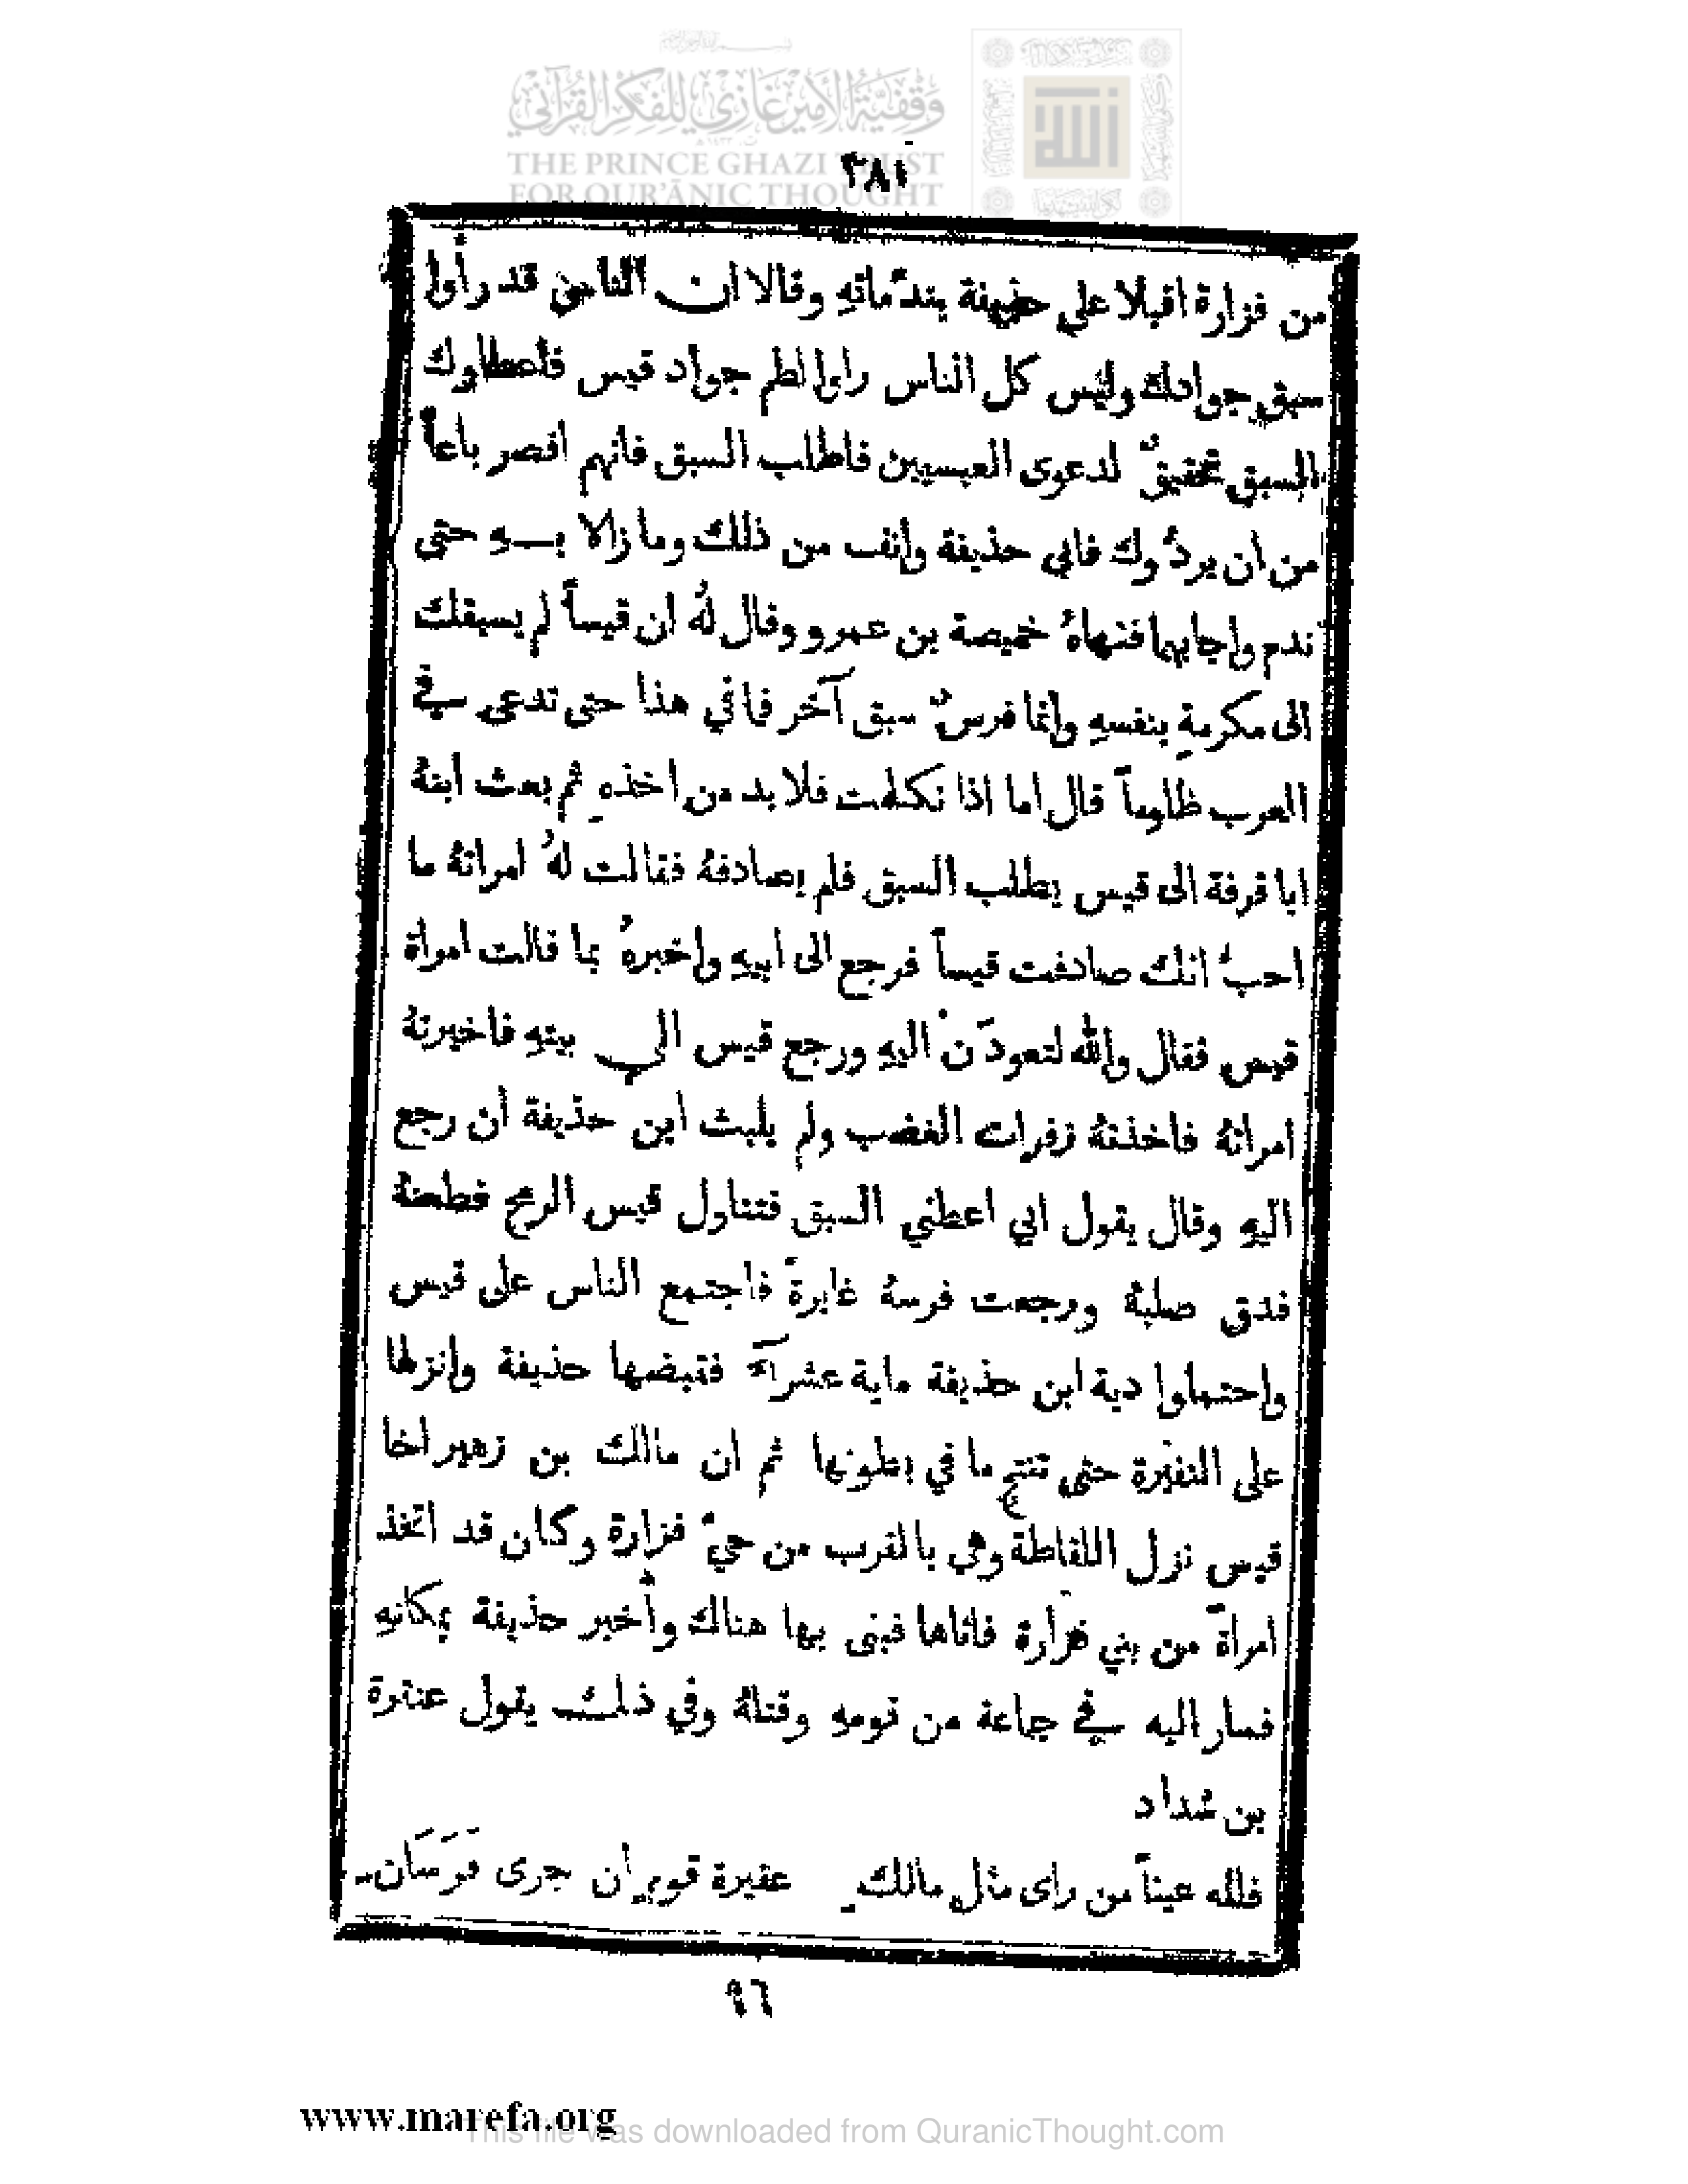 وقفية الأمير غازي للفكر القرآني
THE PRINCE GHAZI TRUST
FOR QUR'ĀNIC THOUGHT
٣٨١
من فزارة اقبلا على حذيفة يندّمانهِ وقالا ان الناس قد رأوا
سبق جوادك وليس كل الناس راوا لطم جواد قيس فاعطاوك
السبق تحقيقٌ لدعوى العبسيين فاطلب السبق فانهم اقصر باعاً
من ان يردُّوك فابى حذيفة وانف من ذلك وما زالا بـهِ حتى
ندم واجابهما فنهاهُ خميصة بن عمرو وقال لهُ ان قيساً لم يسبقك
الى مكرمةٍ بنفسهِ وانما فرسٌ سبق آخر فما في هذا حتى تدعى في
العرب ظلوماً قال اما اذا تكلمت فلا بد من اخذهِ ثم بعث ابنهُ
ابا قرفة الى قيس يطلب السبق فلم يصادفهُ فقالت لهُ امراتهُ ما
احبُّ انك صادفت قيساً فرجع الى ابيهِ واخبرهُ بما قالت امراة
قيس فقال والله لتعودَنَّ اليهِ ورجع قيس الى بيتهِ فاخبرتهُ
امراتهُ فاخذتهُ زفرات الغضب ولم يلبث ابن حذيفة ان رجع
اليهِ وقال يقول ابي اعطني السبق فتناول قيس الرمح فطعنهُ
فدق صلبهُ ورجعت فرسهُ غابرةً فاجتمع الناس على قيس
واحتملوا دية ابن حذيفة ماية عشرآءَ فقبضها حذيفة وانزلها
على النفرة حتى تنتج ما في بطونها ثم ان مالك بن زهير اخا
قيس نزل اللقاطة وهي بالقرب من حيّ فزارة وكان قد اتخذ
امراةً من بني فزارة فاتاها فبنى بها هناك وأُخبر حذيفة بمكانهِ
فسار اليه في جماعة من قومهِ وقتلهُ وفي ذلك يقول عنترة
بن شداد
فلله عيناً من راى مثل مالكٍ عقيرة قوم ان جرى فَرَسَان
٩٦
www.marefa.org
This file was downloaded from QuranicThought.com